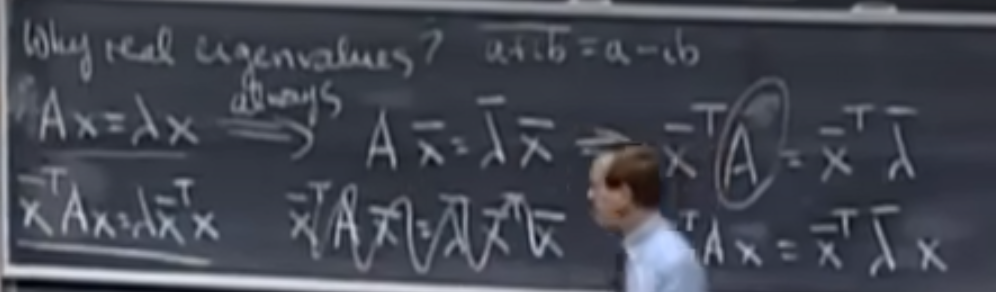 Why real eigenvalues? \overline{a+ib} = a-ib
Ax=λx always⟹ Ax̄=λ̄x̄ ⟹ x̄ᵀA=x̄ᵀλ̄
x̄ᵀAx=λx̄ᵀx x̄ᵀAx̄=λ̄x̄ᵀx̄ ᵀAx=x̄ᵀλ̄x